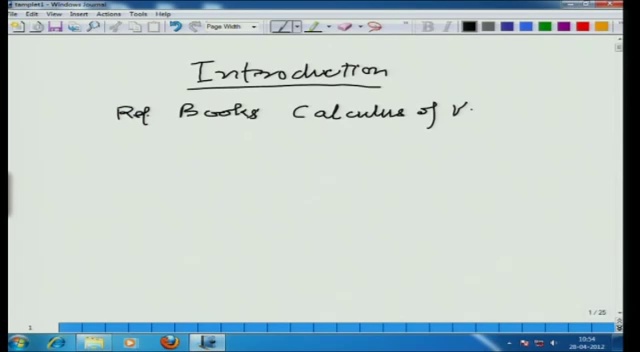 templet1 - Windows Journal
File Edit View Insert Actions Tools Help
Page Width B
Introduction
Ref. Books Calculus of V.
1 / 25
1
10:54
28-04-2012